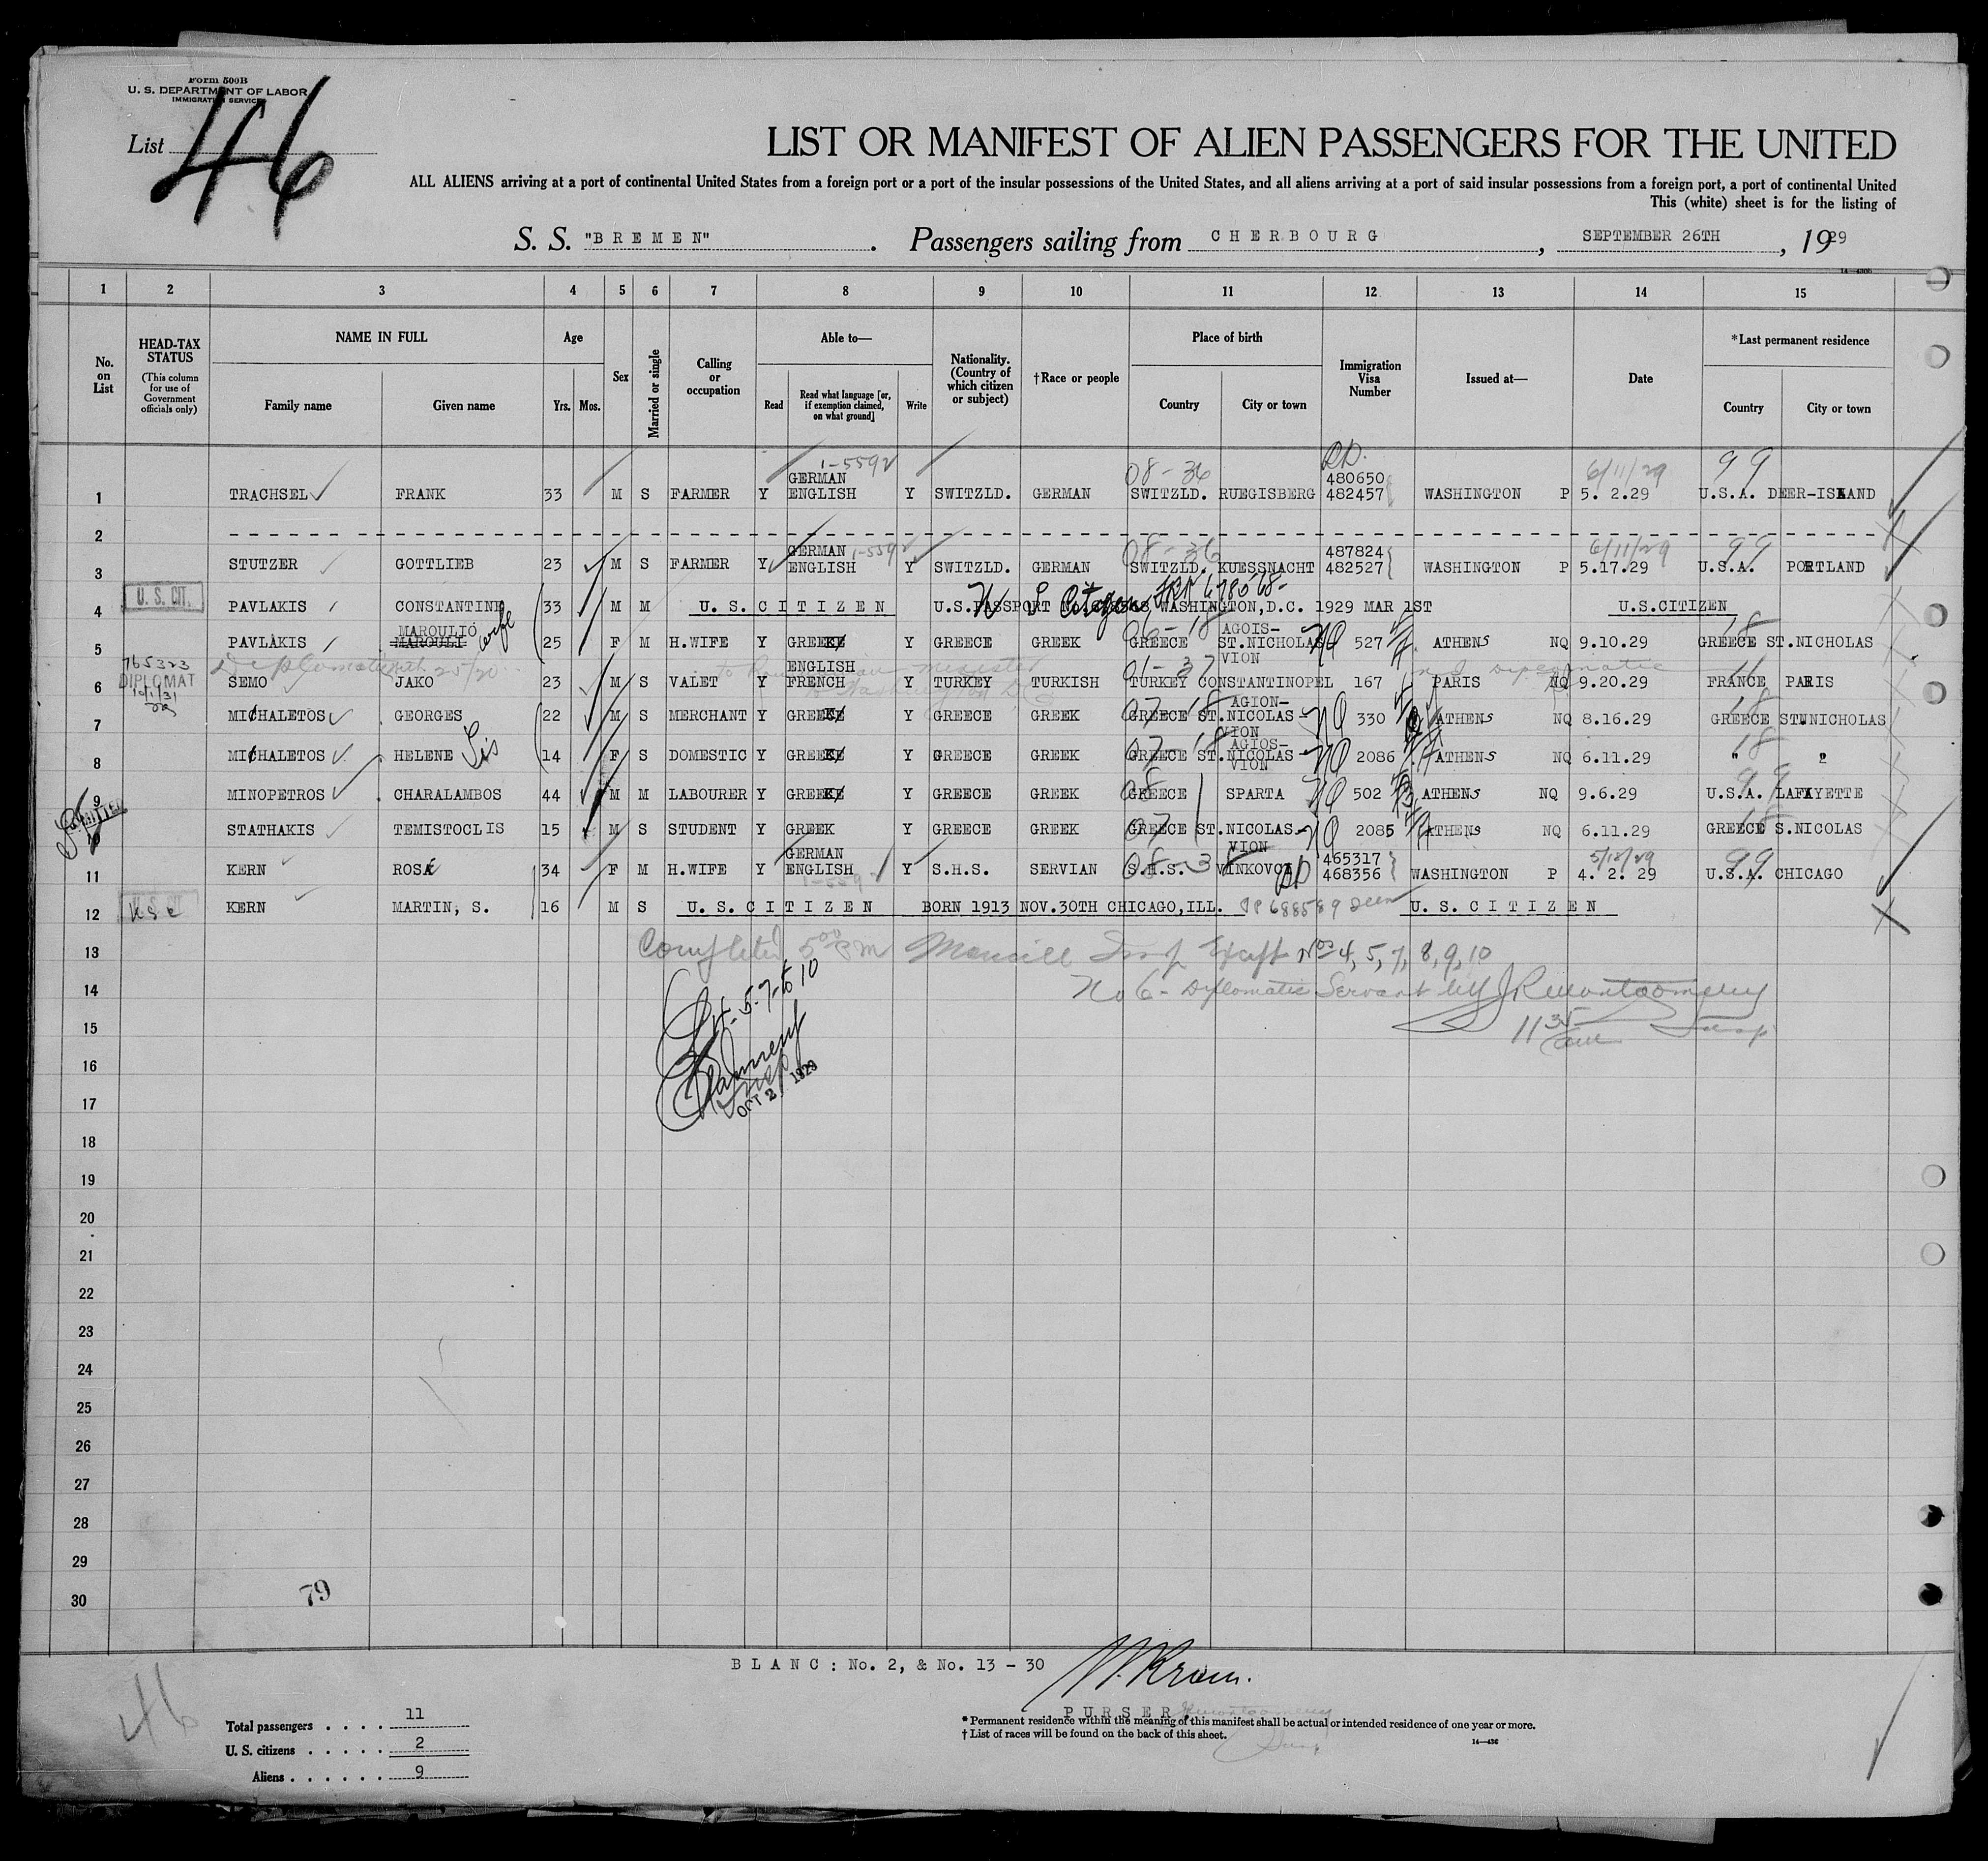 Form 500B
U. S. DEPARTMENT OF LABOR
IMMIGRATION SERVICE
List 46
LIST OR MANIFEST OF ALIEN PASSENGERS FOR THE UNITED
ALL ALIENS arriving at a port of continental United States from a foreign port or a port of the insular possessions of the United States, and all aliens arriving at a port of said insular possessions from a foreign port, a port of continental United
This (white) sheet is for the listing of
S. S. "BREMEN". Passengers sailing from CHERBOURG, SEPTEMBER 26TH, 1929
1 2 3 4 5 6 7 8 9 10 11 12 13 14 15
No. on List
HEAD-TAX STATUS (This column for use of Government officials only)
NAME IN FULL
Family name Given name
Age
Yrs. Mos.
Sex
Married or single
Calling or occupation
Able to—
Read Read what language [or, if exemption claimed, on what ground] Write
Nationality. (Country of which citizen or subject)
†Race or people
Place of birth
Country City or town
Immigration Visa Number
Issued at—
Date
*Last permanent residence
Country City or town
1-5592 08-36 480650 6/11/29 99
GERMAN
1 TRACHSEL FRANK 33 M S FARMER Y ENGLISH Y SWITZLD. GERMAN SWITZLD. RUEGISBERG 482457 WASHINGTON P 5. 2.29 U.S.A. DEER-ISLAND
2
GERMAN 1-5592 08-36 487824 6/11/29 99
3 STUTZER GOTTLIEB 23 M S FARMER Y ENGLISH Y SWITZLD. GERMAN SWITZLD. KUESSNACHT 482527 WASHINGTON P 5.17.29 U.S.A. PORTLAND
4 U. S. CIT. PAVLAKIS CONSTANTINE 33 M M U. S. CITIZEN U.S.PASSPORT WASHINGTON,D.C. 1929 MAR 1ST U.S.CITIZEN
MAROULIO 06-18 AGOIS- 18
5 PAVLAKIS MAROULI wife 25 F M H.WIFE Y GREEK Y GREECE GREEK GREECE ST.NICHOLAS NQ 527 ATHENS NQ 9.10.29 GREECE ST.NICHOLAS
VION
765323 DIPLOMAT ENGLISH 01-37
6 SEMO JAKO 23 M S VALET Y FRENCH Y TURKEY TURKISH TURKEY CONSTANTINOPEL 167 PARIS NQ 9.20.29 FRANCE PARIS
AGION- 18
7 MICHALETOS GEORGES 22 M S MERCHANT Y GREEK Y GREECE GREEK GREECE ST.NICOLAS NQ 330 ATHENS NQ 8.16.29 GREECE ST.NICHOLAS
VION
AGIOS- 18
8 MICHALETOS HELENE Sis 14 F S DOMESTIC Y GREEK Y GREECE GREEK GREECE ST.NICOLAS NQ 2086 ATHENS NQ 6.11.29 " "
VION
9 MINOPETROS CHARALAMBOS 44 M M LABOURER Y GREEK Y GREECE GREEK GREECE SPARTA NQ 502 ATHENS NQ 9.6.29 U.S.A. LAFAYETTE
STATHAKIS TEMISTOCLIS 15 M S STUDENT Y GREEK Y GREECE GREEK GREECE ST.NICOLAS NQ 2085 ATHENS NQ 6.11.29 GREECE S.NICOLAS
VION
GERMAN 465317 99
11 KERN ROSA 34 F M H.WIFE Y ENGLISH Y S.H.S. SERVIAN S.H.S. VINKOVCI 468356 WASHINGTON P 4. 2. 29 U.S.A. CHICAGO
12 KERN MARTIN, S. 16 M S U. S. CITIZEN BORN 1913 NOV.30TH CHICAGO,ILL. PP 688589 seen U. S. CITIZEN
13 Completed 5 00 PM Insp Except Nos 4, 5, 7, 8, 9, 10
14 No 6 - Diplomatic Servant JRMontgomery
15 11 35 am Insp
5-7-to 10
16
OCT 2 1929
17
18
19
20
21
22
23
24
25
26
27
28
29
30
79
BLANC: No. 2, & No. 13 - 30
PURSER
46
Total passengers . . . . 11
U. S. citizens . . . . . 2
Aliens . . . . . . 9
* Permanent residence within the meaning of this manifest shall be actual or intended residence of one year or more.
† List of races will be found on the back of this sheet.